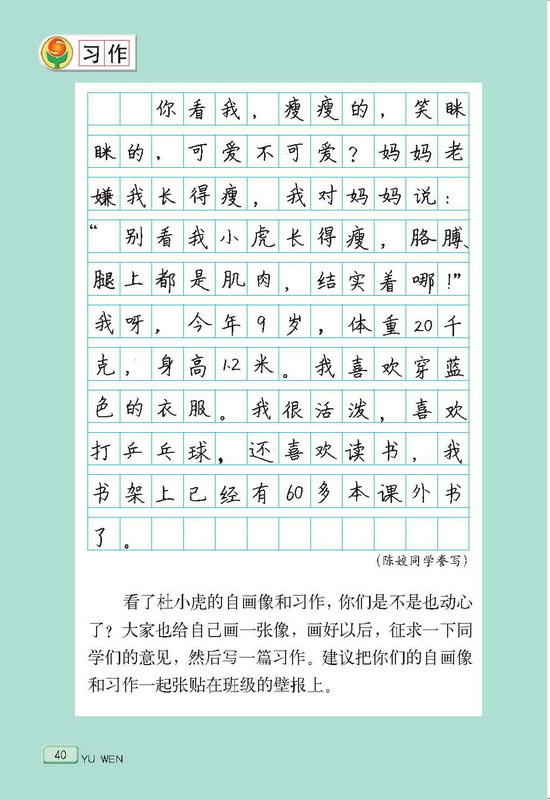 习作
你看我，瘦瘦的，笑眯
眯的，可爱不可爱？妈妈老
嫌我长得瘦，我对妈妈说：
“别看我小虎长得瘦，胳膊、
腿上都是肌肉，结实着哪！”
我呀，今年9岁，体重20千
克，身高1.2米。我喜欢穿蓝
色的衣服。我很活泼，喜欢
打乒乓球，还喜欢读书，我
书架上已经有60多本课外书
了。
（陈姣同学誊写）
看了杜小虎的自画像和习作，你们是不是也动心
了？大家也给自己画一张像，画好以后，征求一下同
学们的意见，然后写一篇习作。建议把你们的自画像
和习作一起张贴在班级的壁报上。
40 YU WEN